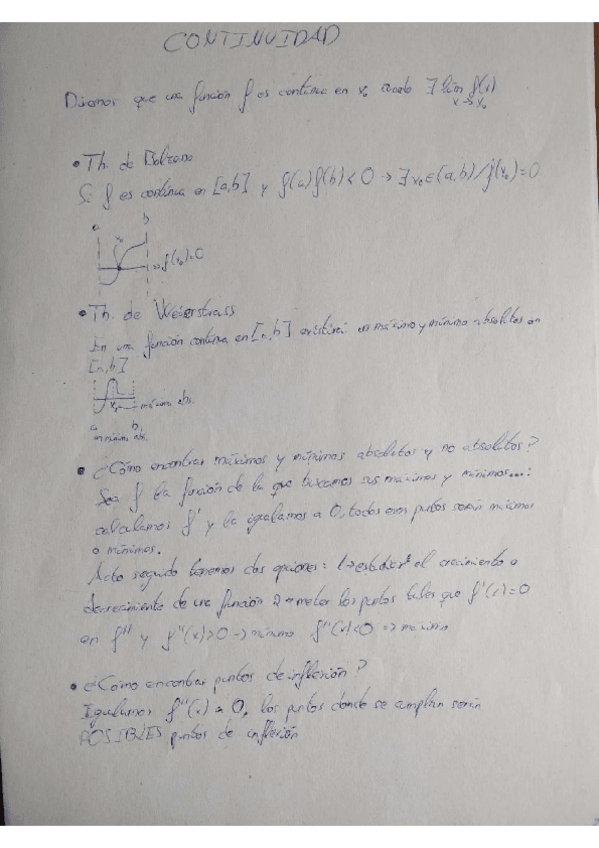 CONTINUIDAD
Diremos que una función f es continua en x₀ cuando ∃ lim f(x)
x→x₀
• Th. de Bolzano
Si f es continua en [a,b] y f(a)f(b)<0 → ∃ x₀∈(a,b)/f(x₀)=0
a b
x₀
f(x₀)=0
• Th. de Weierstrass
En una función continua en [a,b] existirá un máximo y mínimo absolutos en
[a,b]
x₀ máximo abs.
a b
mínimo abs.
• ¿Cómo encontrar máximos y mínimos absolutos y no absolutos?
Sea f la función de la que buscamos sus máximos y mínimos...:
calculamos f' y la igualamos a 0, todos esos puntos serán máximos
o mínimos.
Acto seguido tenemos dos opciones: 1→estudiar el crecimiento o
decrecimiento de una función 2→meter los puntos tales que f'(x)=0
en f'' y f''(x)>0 → mínimo f''(x)<0 → máximo
• ¿Cómo encontrar puntos de inflexión?
Igualamos f''(x) a 0, los puntos donde se cumplan serán
POSIBLES puntos de inflexión